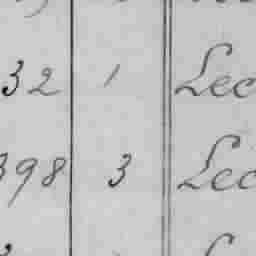 32 1 Lec
398 3 Lec